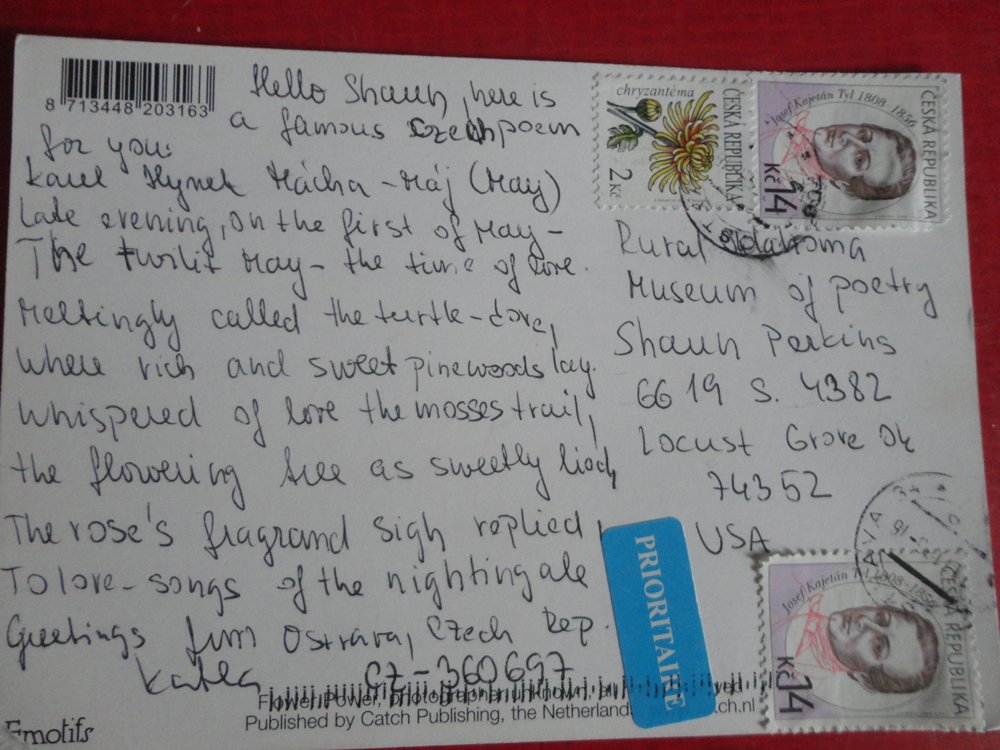 8 713448 203163
Hello Shaun, here is
a famous Czech poem
for you:
Karel Hynek Mácha - Máj (May)
Late evening, on the first of May -
The twilit May - the time of love.
Meltingly called the turtle-dove,
where rich and sweet pinewoods lay.
Whispered of love the mosses trail,
the flowering tree as sweetly lied,
The rose's fragrand sigh replied
To love-songs of the nightingale
Greetings from Ostrava, Czech Rep.
Katka CZ-360697
Flower Power, photographer unknown,
Published by Catch Publishing, the Netherlands
Emotifs
chryzantéma
ČESKÁ REPUBLIKA
2 Kč
Josef Kajetán Tyl 1808 - 1856
ČESKÁ REPUBLIKA
Kč 14
Rural Oklahoma
Museum of poetry
Shaun Perkins
6619 S. 4382
Locust Grove Ok
74352
USA
PRIORITAIRE
Josef Kajetán Tyl 1808 - 1856
ČESKÁ REPUBLIKA
Kč 14